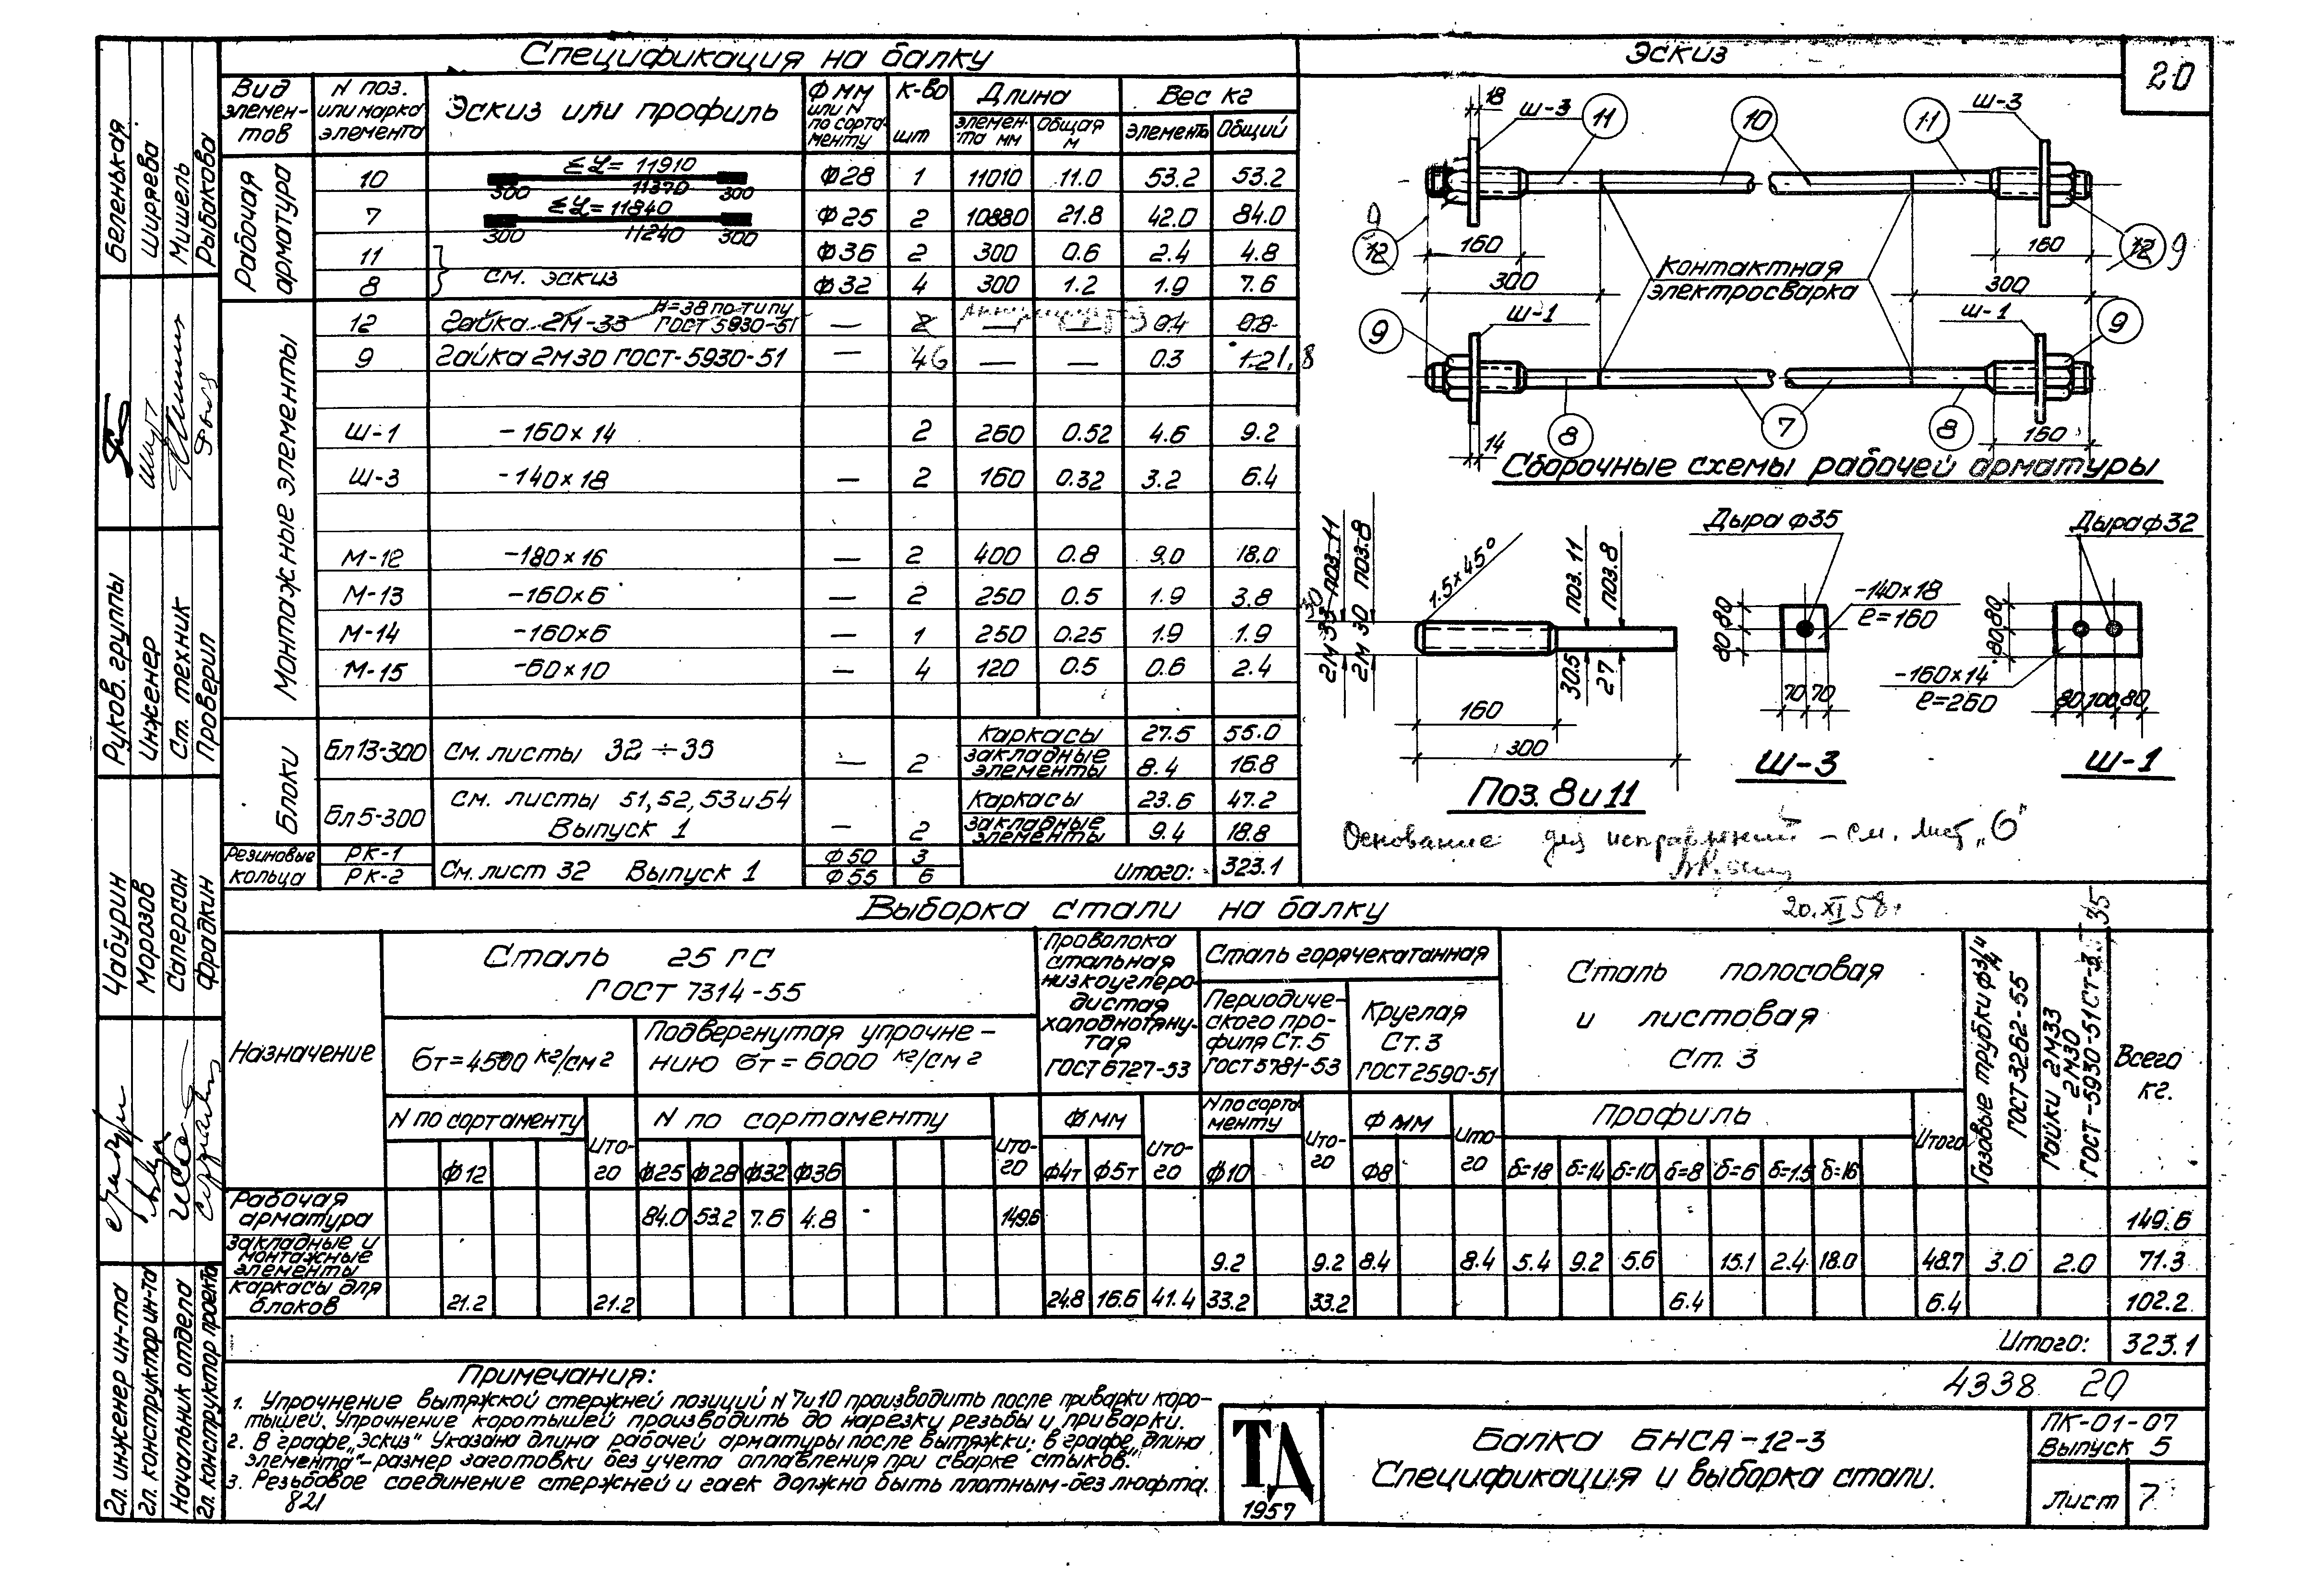 Спецификация на балку
Эскиз
20
Вид элемен-тов | N поз. или марка элемента | Эскиз или профиль | Ф мм или N по сорта-менту | К-во шт | Длина элемен-та мм | Длина общая м | Вес кг элемента | Вес кг Общий
Рабочая арматура
10 | Σℒ = 11910 300 11370 300 | Ф28 | 1 | 11010 | 11.0 | 53.2 | 53.2
7 | Σℒ = 11840 300 11240 300 | Ф25 | 2 | 10880 | 21.8 | 42.0 | 84.0
11 | см. эскиз | Ф36 | 2 | 300 | 0.6 | 2.4 | 4.8
8 | Ф32 | 4 | 300 | 1.2 | 1.9 | 7.6
Монтажные элементы
12 | Гайка 2М-33 Н=38 по типу ГОСТ 5930-51 | — | 2 | — | — | 0.4 | 0.8
9 | Гайка 2М30 ГОСТ-5930-51 | — | 4 6 | — | — | 0.3 | 1.2 1,8
Ш-1 | -160×14 | 2 | 260 | 0.52 | 4.6 | 9.2
Ш-3 | -140×18 | — | 2 | 160 | 0.32 | 3.2 | 6.4
М-12 | -180×16 | — | 2 | 400 | 0.8 | 9.0 | 18.0
М-13 | -160×6 | — | 2 | 250 | 0.5 | 1.9 | 3.8
М-14 | -160×6 | — | 1 | 250 | 0.25 | 1.9 | 1.9
М-15 | -60×10 | — | 4 | 120 | 0.5 | 0.6 | 2.4
Блоки
Бл13-300 | См. листы 32÷35 | — | 2 | Каркасы | 27.5 | 55.0
закладные элементы | 8.4 | 16.8
Бл5-300 | См. листы 51, 52, 53 и 54 Выпуск 1 | — | 2 | Каркасы | 23.6 | 47.2
закладные элементы | 9.4 | 18.8
Резиновые кольца | РК-1 | См. лист 32 Выпуск 1 | Ф50 | 3
РК-2 | Ф55 | 6 | Итого: | 323.1
18 Ш-3 11 10 11 Ш-3
9 12 160 160 12 9
300 Контактная электросварка 300
9 Ш-1 Ш-1 9
8 7 8
14 160
Сборочные схемы рабочей арматуры
30 2М 33 поз. 11
2М 30 поз. 8
1.5×45°
поз. 11 поз. 8
30.5 27
160
300
Поз. 8 и 11
Дыра ф35
80 80
-140×18
ℓ=160
70 70
Ш-3
Дыра ф32
80 80
-160×14
ℓ=260
80 100 80
Ш-1
Основание для исправлений - см. лист „6"
20.XI 58г.
Выборка стали на балку
Назначение
Сталь 25 ГС
ГОСТ 7314-55
бт=4500 кг/см2
Подвергнутая упрочне-
нию бт=6000 кг/см2
N по сортаменту | Ито-го | N по сортаменту | Ито-го
Ф12 | Ф25 | Ф28 | Ф32 | Ф36
Проволока стальная низкоуглеро-дистая холоднотяну-тая ГОСТ 6727-53
Ф мм | Ито-го
Ф4т | Ф5т
Сталь горячекатанная
Периодиче-ского про-филя Ст. 5 ГОСТ 5781-53
N по сорта-менту | Ито-го
Ф10
Круглая Ст. 3 ГОСТ 2590-51
Ф мм | Ито-го
Ф8
Сталь полосовая
и листовая
Ст. 3
Профиль | Итого
δ=18 | δ=14 | δ=10 | δ=8 | δ=6 | δ=1.5 | δ=16
Газовые трубки ф3/4 ГОСТ 3262-55
Гайки 2М33 2М30 ГОСТ-5930-51 Ст-3 35
Всего кг.
Рабочая арматура | 84.0 | 53.2 | 7.6 | 4.8 | 149.6 | 149.6
Закладные и монтажные элементы | 9.2 | 9.2 | 8.4 | 8.4 | 5.4 | 9.2 | 5.6 | 15.1 | 2.4 | 18.0 | 48.7 | 3.0 | 2.0 | 71.3
Каркасы для блоков | 21.2 | 21.2 | 24.8 | 16.6 | 41.4 | 33.2 | 33.2 | 6.4 | 6.4 | 102.2
Итого: | 323.1
Примечания:
1. Упрочнение вытяжкой стержней позиций N 7 и 10 производить после приварки коро-
тышей. Упрочнение коротышей производить до нарезки резьбы и приварки.
2. В графе „Эскиз" указана длина рабочей арматуры после вытяжки; в графе „длина
элемента"-размер заготовки без учета оплавления при сварке стыков.
3. Резьбовое соединение стержней и гаек должно быть плотным-без люфта.
821
4338 20
ТД
1957
Балка БНСА-12-3
Спецификация и выборка стали.
ПК-01-07
Выпуск 5
Лист 7
Гл. инженер ин-та | Чабурин | Руков. группы | Беленькая
Гл. конструктор ин-та | Морозов | Инженер | Ширяева
Начальник отдела | Саперсон | Ст. техник | Мишель
Гл. конструктор проекта | Фрадкин | Проверил | Рыбакова